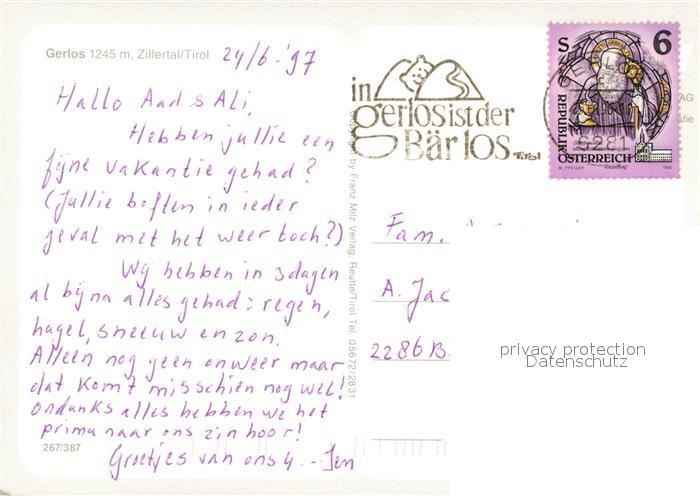 Gerlos 1245 m, Zillertal/Tirol
24/6-'97
Hallo Aad & Ali,
Hebben jullie een
fijne vakantie gehad?
(Jullie boften in ieder
geval met het weer toch?)
Wij hebben in 3 dagen
al bijna alles gehad: regen,
hagel, sneeuw en zon.
Alleen nog geen onweer maar
dat komt misschien nog wel!
Ondanks alles hebben we het
prima naar ons zin hoor!
Groetjes van ons 4. - Jen
267/387
by Franz Milz Verlag, Reutte/Tirol Tel. 05672/2831
in
gerlos ist der
Bär los
Tirol
S 6
REPUBLIK
ÖSTERREICH
6281
Fam.
A. Jac
2286 B
privacy protection
Datenschutz